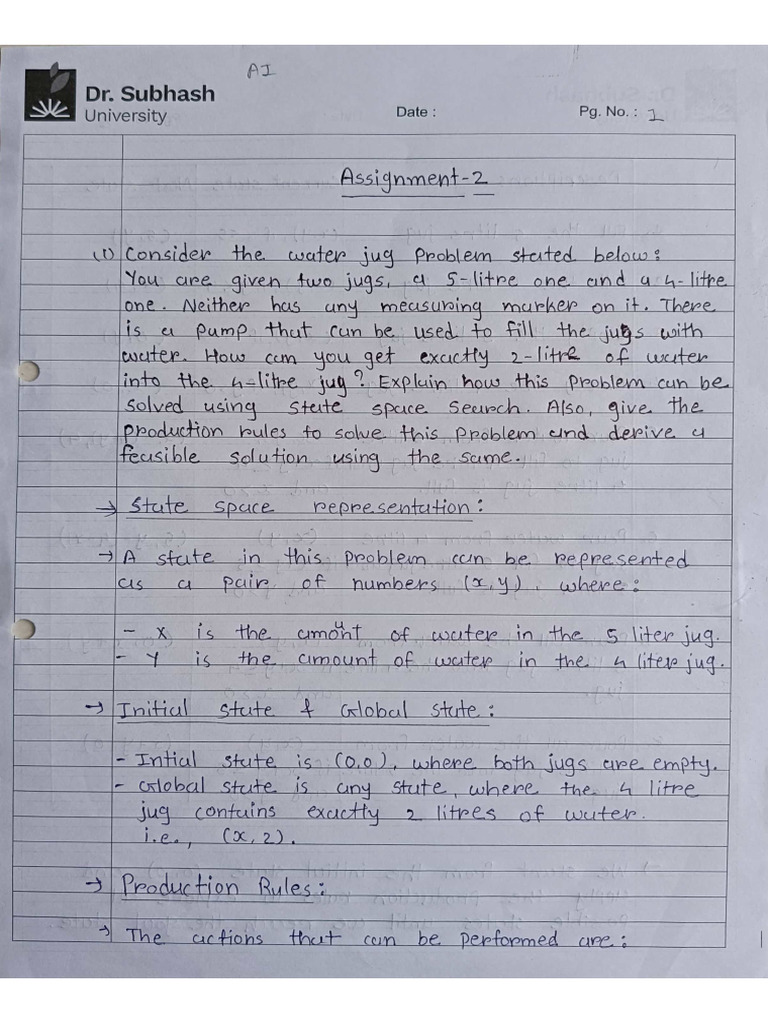 AI
Dr. Subhash
University
Date :
Pg. No. : 1
Assignment-2
(1) Consider the water jug problem stated below:
You are given two jugs, a 5-litre one and a 4-litre
one. Neither has any measuring marker on it. There
is a pump that can be used to fill the jugs with
water. How can you get exactly 2-litre of water
into the 4-litre jug? Explain how this problem can be
solved using state space search. Also, give the
production rules to solve this problem and derive a
feasible solution using the same.
→ State space representation:
→ A state in this problem can be represented
as a pair of numbers (x,y), where:
- X is the amount of water in the 5 liter jug.
- Y is the amount of water in the 4 liter jug.
→ Initial state & Global state:
- Intial state is (0,0), where both jugs are empty.
- Global state is any state, where the 4 litre
jug contains exactly 2 litres of water.
i.e., (x,2).
→ Production Rules:
→ The actions that can be performed are: